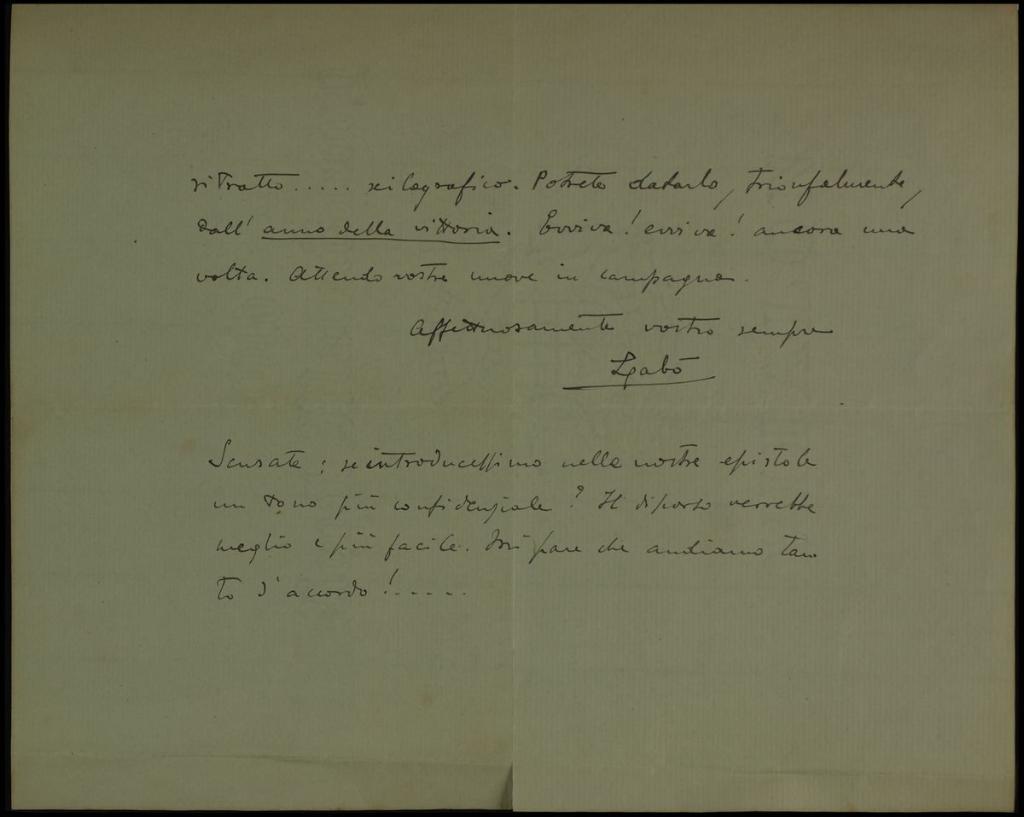 ritratto..... xilografico. Potrete datarlo, trionfalmente,
dall' anno della vittoria. Evviva! evviva! ancora una
volta. Attendo vostre nuove in campagna.
Affettuosamente vostro sempre
Sensate; se introducessimo nelle nostre epistole
un tono più confidenziale? Il diporto verrebbe
meglio e più facile. Mi pare che andiamo tan
to d'accordo!.....